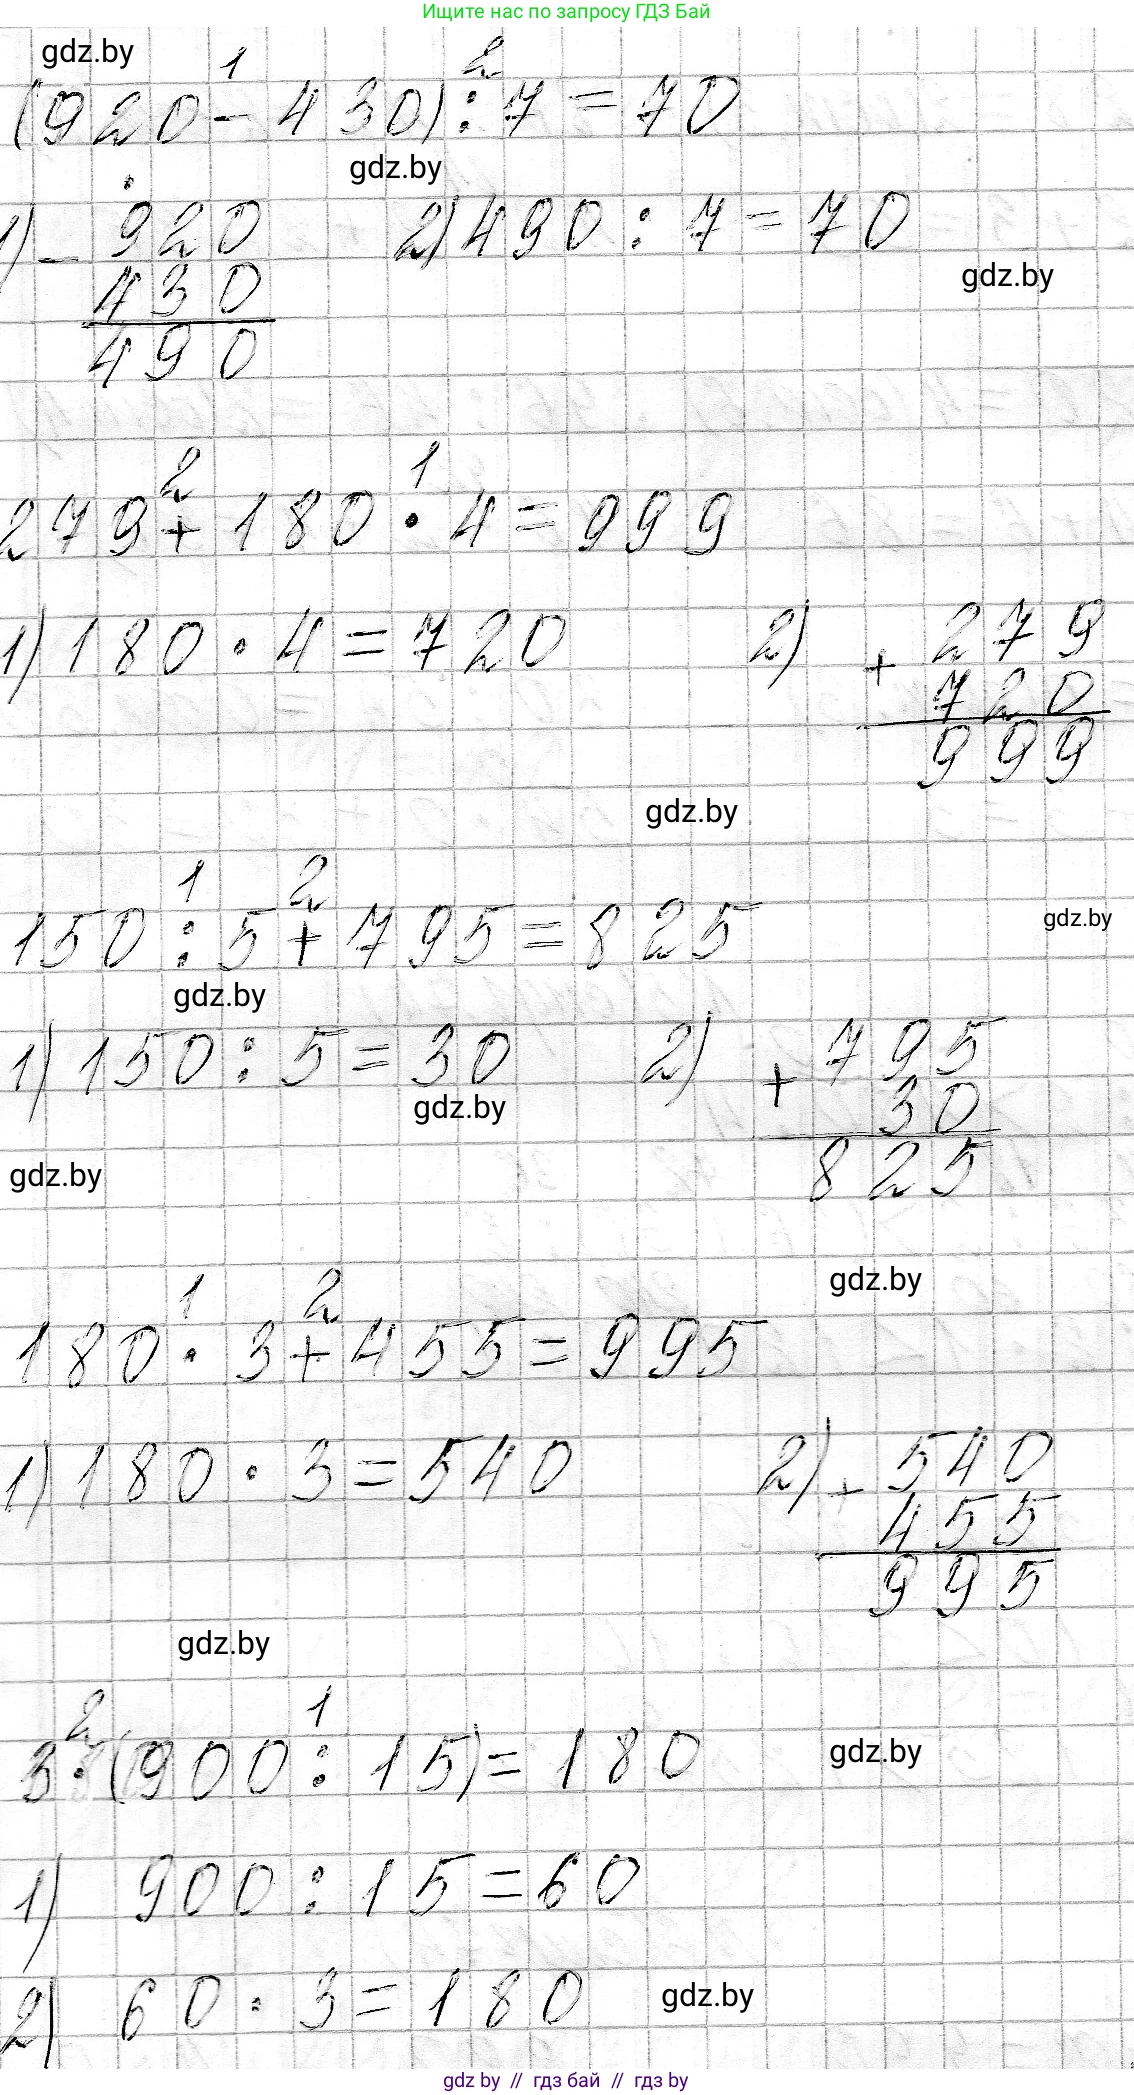 Ищите нас по запросу ГДЗ Бай
gdz.by
1 2
(920 - 430) : 7 = 70
gdz.by
1) - 920 2) 490 : 7 = 70
430
gdz.by
490
2 1
279 + 180 · 4 = 999
1) 180 · 4 = 720 2) + 279
720
999
gdz.by
1 2
150 : 5 + 795 = 825
gdz.by
gdz.by
1) 150 : 5 = 30 2) + 795
30
gdz.by
825
gdz.by
gdz.by
1 2
180 · 3 + 455 = 995
1) 180 · 3 = 540 2) + 540
455
995
gdz.by
2 1
3 · (900 : 15) = 180
gdz.by
1) 900 : 15 = 60
2) 60 · 3 = 180
gdz.by
gdz by // гдз бай // гдз by